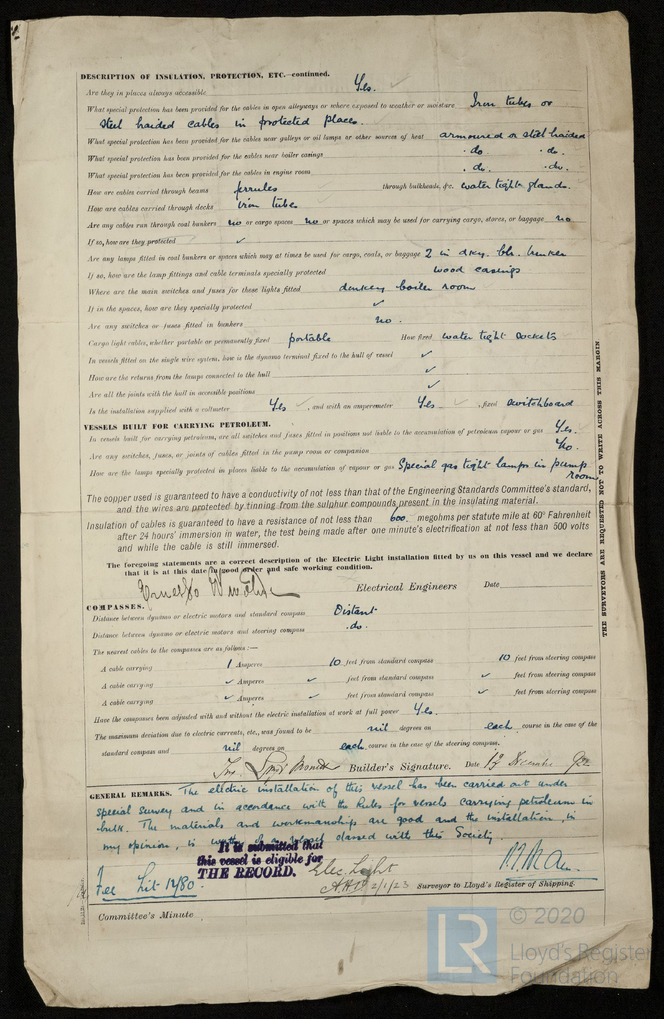 DESCRIPTION OF INSULATION, PROTECTION, ETC.—continued.
Are they in places always accessible Yes.
What special protection has been provided for the cables in open alleyways or where exposed to weather or moisture Iron tubes or
steel braided cables in protected places.
What special protection has been provided for the cables near galleys or oil lamps or other sources of heat armoured or steel braided
What special protection has been provided for the cables near boiler casings do. do.
What special protection has been provided for the cables in engine room do. do.
How are cables carried through beams ferrules through bulkheads, &c. water tight glands.
How are cables carried through decks iron tubes
Are any cables run through coal bunkers no or cargo spaces no or spaces which may be used for carrying cargo, stores, or baggage no
If so, how are they protected ✓
Are any lamps fitted in coal bunkers or spaces which may at times be used for cargo, coals, or baggage 2 in dkey. blr. bunker
If so, how are the lamp fittings and cable terminals specially protected wood casings
Where are the main switches and fuses for these lights fitted dunkey boiler room
If in the spaces, how are they specially protected ✓
Are any switches or fuses fitted in bunkers no.
Cargo light cables, whether portable or permanently fixed portable How fixed water tight sockets
In vessels fitted on the single wire system, how is the dynamo terminal fixed to the hull of vessel ✓
How are the returns from the lamps connected to the hull ✓
Are all the joints with the hull in accessible positions ✓
Is the installation supplied with a voltmeter Yes, and with an amperemeter Yes, fixed switchboard
VESSELS BUILT FOR CARRYING PETROLEUM.
In vessels built for carrying petroleum, are all switches and fuses fitted in positions not liable to the accumulation of petroleum vapour or gas Yes.
Are any switches, fuses, or joints of cables fitted in the pump room or companion No.
How are the lamps specially protected in places liable to the accumulation of vapour or gas Special gas tight lamps in pump
room
The copper used is guaranteed to have a conductivity of not less than that of the Engineering Standards Committee's standard,
and the wires are protected by tinning from the sulphur compounds present in the insulating material.
Insulation of cables is guaranteed to have a resistance of not less than 600 megohms per statute mile at 60° Fahrenheit
after 24 hours' immersion in water, the test being made after one minute's electrification at not less than 500 volts
and while the cable is still immersed.
The foregoing statements are a correct description of the Electric Light installation fitted by us on this vessel and we declare
that it is at this date in good order and safe working condition.
Electrical Engineers Date
COMPASSES.
Distance between dynamo or electric motors and standard compass Distant
Distance between dynamo or electric motors and steering compass do.
The nearest cables to the compasses are as follows:—
A cable carrying 1 Amperes 10 feet from standard compass 10 feet from steering compass
A cable carrying ✓ Amperes ✓ feet from standard compass ✓ feet from steering compass
A cable carrying ✓ Amperes ✓ feet from standard compass ✓ feet from steering compass
Have the compasses been adjusted with and without the electric installation at work at full power Yes.
The maximum deviation due to electric currents, etc., was found to be nil degrees on each course in the case of the
standard compass and nil degrees on each course in the case of the steering compass.
Builder's Signature. Date
GENERAL REMARKS. The electric installation of this vessel has been carried out under
special survey and in accordance with the Rules for vessels carrying petroleum in
bulk. The materials and workmanship are good and the installation, in
my opinion, is of a vessel classed with this Society.
It is submitted that
this vessel is eligible for
THE RECORD. Elec. Light
2/1/23 Surveyor to Lloyd's Register of Shipping.
Fee Lit 1280.
Committee's Minute
THE SURVEYORS ARE REQUESTED NOT TO WRITE ACROSS THIS MARGIN
LR
© 2020
Lloyd's Register
Foundation